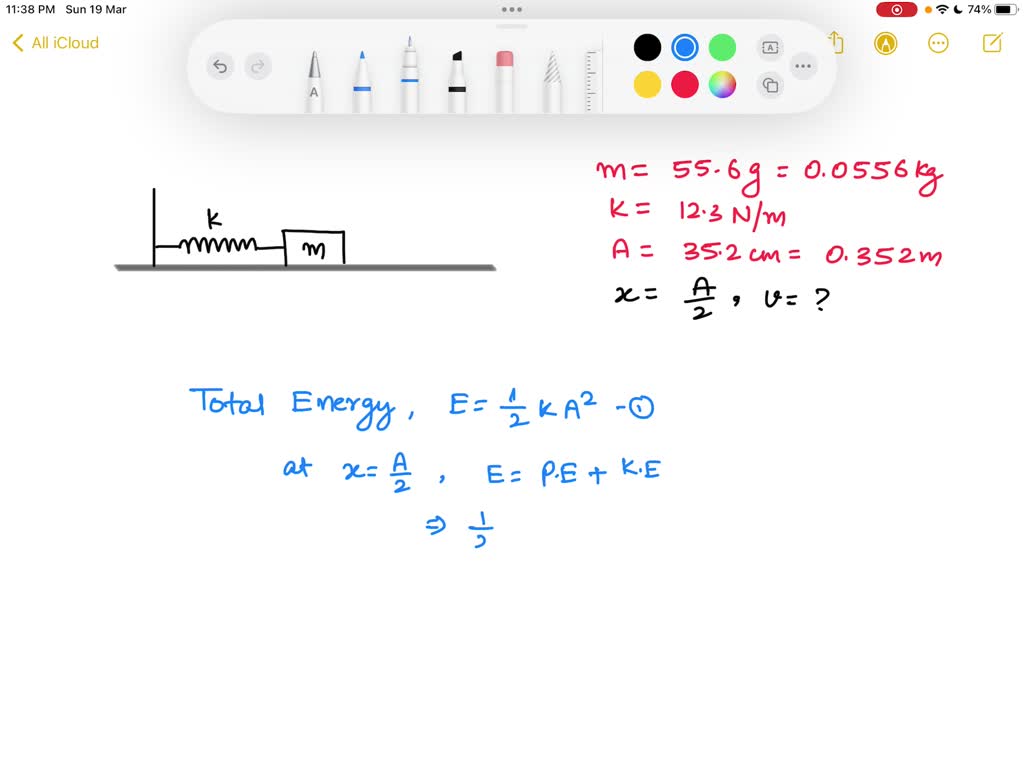 11:38 PM Sun 19 Mar
74%
All iCloud
A
A
m= 55.6g = 0.0556kg
K= 12.3 N/m
A= 35.2 cm = 0.352m
x= A/2, v= ?
k
m
Total Energy, E= 1/2 KA² -①
at x= A/2, E= P.E + K.E
⇒ 1/2